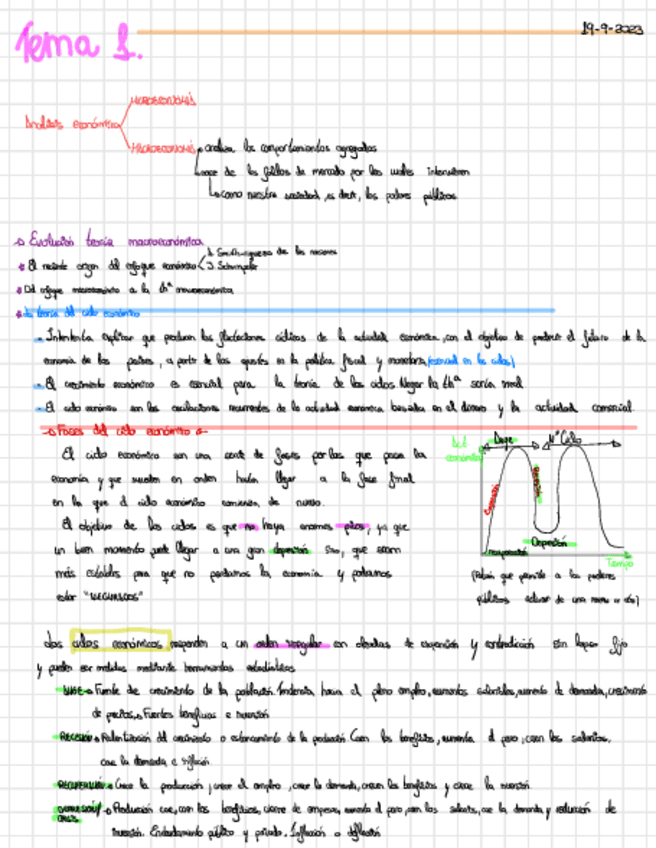 19-9-2023
Tema 1.
Análisis económico
MICROECONOMÍA
MACROECONOMÍA
analiza los comportamientos agregados
nace de los fallos de mercado por los cuales intervienen
como nuestra sociedad, es decir, los poderes públicos
Evolución teoría macroeconómica
El reciente origen del enfoque económico
Smith-riqueza de las naciones
Schumpeter
Del enfoque microeconómico a la thª macroeconómica
La teoría del ciclo económico
explicar que producen las fluctuaciones cíclicas de la actividad económica, con el objetivo de predecir el futuro de la
economía de los países, a partir de los ajustes en la política fiscal y monetaria (esencial en los ciclos)
El crecimiento económico es esencial para la teoría de los ciclos
El ciclo económico son las oscilaciones recurrentes de la actividad económica basada en el dinero y la actividad comercial.
Fases del ciclo económico
El ciclo económico son una serie de fases por las que pasa la
economía y que suceden en orden hasta llegar a la fase final
en la que el ciclo económico comienza de nuevo.
El objetivo de los ciclos es que no haya enormes picos, ya que
un buen momento puede llegar a una gran depresión sino, que sean
más estables para que no perdamos la economía y podamos
estar "
Act. económica
Auge
Nº Ciclo
Expansión
Recesión
Depresión
Recuperación
Tiempo
que permite a los poderes
públicos actuar de una forma u otra)
Los ciclos económicos responden a un orden irregular en oleadas de expansión y contradicción sin lapso fijo
y pueden ser medidos mediante herramientas estadísticas
AUGE Fuente de crecimiento de la población. Tendencia hacia el pleno empleo, aumentos salariales, aumento de demanda, crecimiento
de precios, Fuertes beneficios e inversión
RECESIÓN Ralentización del crecimiento o estancamiento de la producción. Caen los beneficios, aumenta el paro, caen los salarios,
cae la demanda e inflación.
RECUPERACIÓN Crece la producción, crece el empleo, crece la demanda, crecen los beneficios y crece la inversión
DEPRESIÓN/CRISIS Producción cae, caen los beneficios, cierre de empresas, aumenta el paro, caen los salarios, cae la demanda y reducción de
inversión. Endeudamiento público y privado. Inflación o deflación